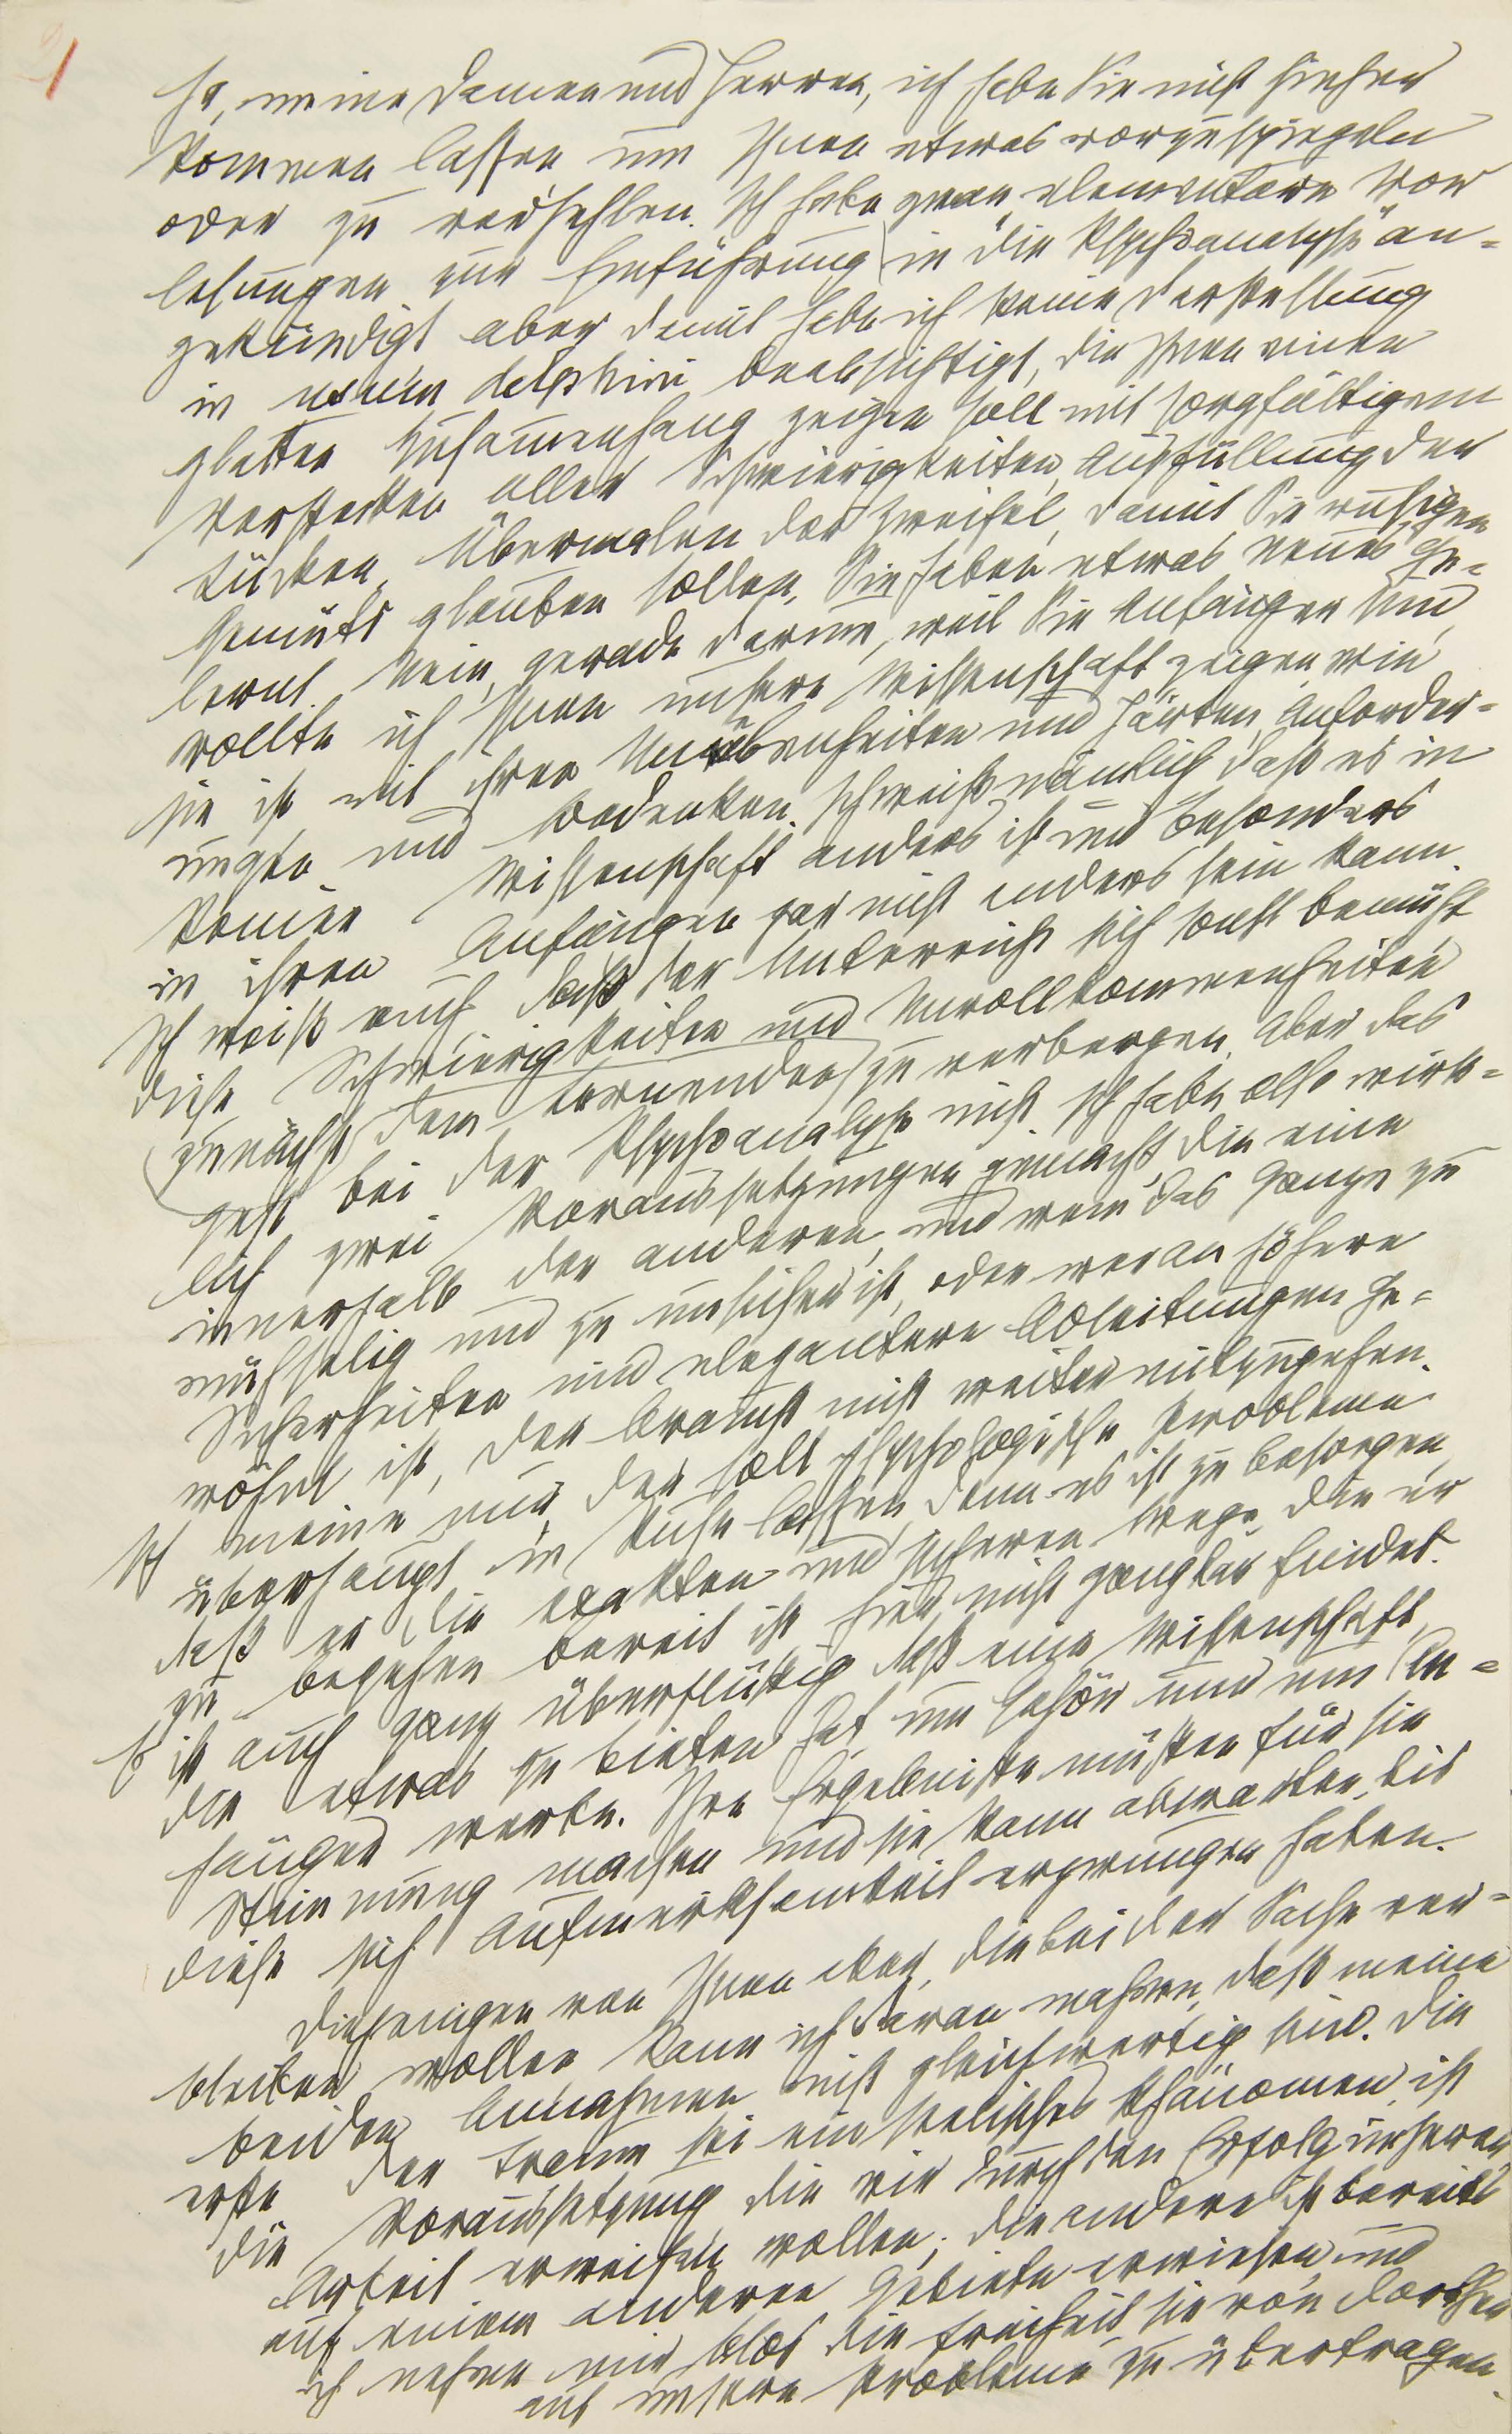 Ja, meine Damen und Herren, ich habe Sie nicht hieher
kommen lassen um Ihnen etwas vorzuspiegeln
oder zu verhehlen. Ich habe zwar „elementare Vor
lesungen zur Einführung in die Psychoanalyse“ an=
gekündigt aber damit habe ich keine Darstellung
in usum delphini beabsichtigt, die Ihnen einen
glatten Zusammenhang zeigen soll mit sorgfältigem
Verstecken aller Schwierigkeiten, Ausfüllung der
Lücken, Übermalen der Zweifel, damit Sie ruhigen
Gemüts glauben sollen, Sie haben etwas neues ge=
lernt. Nein, gerade darum, weil Sie Anfänger sind,
wollte ich Ihnen unsere Wissenschaft zeigen, wie
sie ist mit ihren Unebenheiten und Härten, Anforder=
ungen und Bedenken. Ich weiß nämlich daß es in
keiner Wissenschaft anders ist und besonders
in ihren Anfängen gar nicht anders sein kann.
Ich weiß auch, daß der Unterricht sich sonst bemüht
diese Schwierigkeiten und Unvollkommenheiten
zunächst dem Lernenden zu verbergen. Aber das
geht bei der Psychoanalyse nicht. Ich habe also wirk=
lich zwei Voraussetzungen gemacht, die eine
innerhalb der anderen, und wem das Ganze zu
mühselig und zu unsicher ist, oder wer an höhere
Sicherheiten und elegantere Ableitungen ge=
wöhnt ist, der braucht nicht weiter mitzugehen.
Ich meine nur, der soll psychologische Probleme
überhaupt in Ruhe lassen, denn es ist zu besorgen,
daß er die exakten und sicheren Wege, die er
zu begehen bereit ist, hier nicht gangbar findet.
Es ist auch ganz überflüssig, daß eine Wissenschaft,
die etwas zu bieten hat um Gehör und um An=
hänger werbe. Ihre Ergebnisse müssen für sie
Stimmung machen und sie kann abwarten, bis
diese sich Aufmerksamkeit erzwungen haben.
Diejenigen von Ihnen aber, die bei der Sache ver=
bleiben wollen kann ich daran mahnen, daß meine
beiden Annahmen nicht gleichwertig sind. Die
erste der Traum sei ein seelisches Phänomen, ist
die Voraussetzung die wir durch den Erfolg unserer
Arbeit erweisen wollen; die andere ist bereits
auf einem anderen Gebiete erwiesen, und
ich nehme mir blos die Freiheit sie von dorther
auf unsere Probleme zu übertragen.